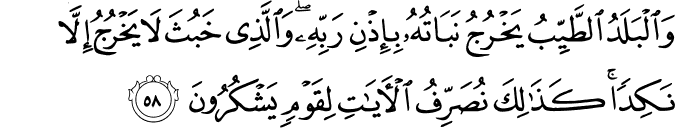 وَٱلْبَلَدُ ٱلطَّيِّبُ يَخْرُجُ نَبَاتُهُۥ بِإِذْنِ رَبِّهِۦ ۖ وَٱلَّذِى خَبُثَ لَا يَخْرُجُ إِلَّا
نَكِدًا ۚ كَذَٰلِكَ نُصَرِّفُ ٱلْـَٔايَـٰتِ لِقَوْمٍ يَشْكُرُونَ ٥٨